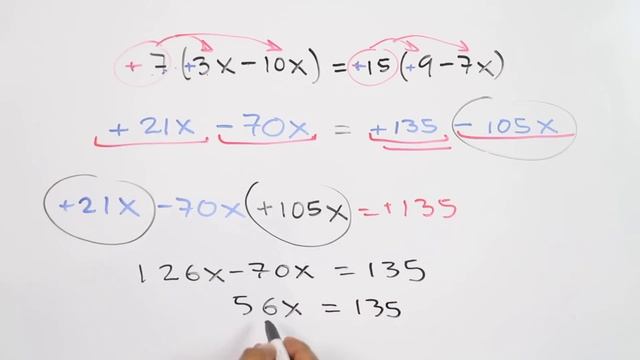 +7(+3x-10x)=+15(+9-7x)
+21x-70x=+135-105x
+21x-70x+105x=+135
126x-70x=135
56x=135